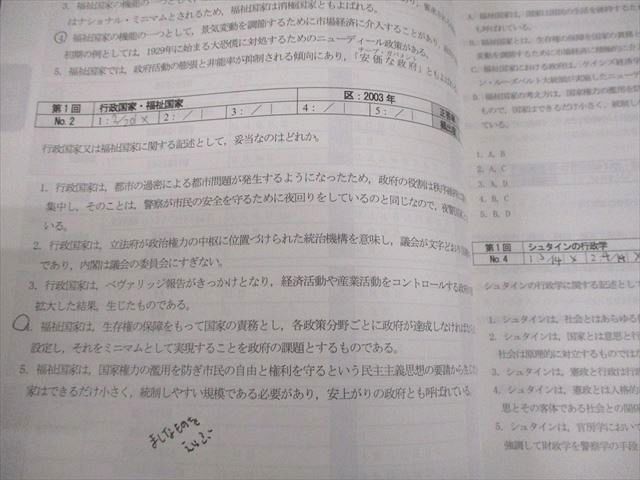 3. 福祉国家の機能の一つとして,
はナショナル・ミニマムとされるため, 福祉国家は消極国家ともよばれる。
④ 福祉国家の機能の一つとして, 景気変動を調節するために市場経済に介入することがあり,
初期の例としては, 1929年に始まる大恐慌に対処するためのニューディール政策がある。
5. 福祉国家では, 政府活動の膨張と非能率が抑制される傾向にあり,「安価な政府」ともよばれ
第1回 行政国家・福祉国家 区：2003年
No.2 1： × 2：／ 3：／ 4：／ 5：／
行政国家又は福祉国家に関する記述として, 妥当なのはどれか。
1. 行政国家は, 都市の過密による都市問題が発生するようになったため, 政府の役割は秩序維持に
集中し, そのことは, 警察が市民の安全を守るために夜回りをしているのと同じなので, 夜警国家と
いる。
2. 行政国家は, 立法府が政治権力の中枢に位置づけられた統治機構を意味し, 議会が文字どおり
であり, 内閣は議会の委員会にすぎない。
3. 行政国家は, ベヴァリッジ報告がきっかけとなり, 経済活動や産業活動をコントロールする政府の
拡大した結果, 生じたものである。
福祉国家は, 生存権の保障をもって国家の責務とし, 各政策分野ごとに政府が達成しなければ
設定し, それをミニマムとして実現することを政府の課題とするものである。
5. 福祉国家は, 国家権力の濫用を防ぎ市民の自由と権利を守るという民主主義思想の要請から
家はできるだけ小さく, 統制しやすい規模である必要があり, 安上がりの政府とも呼ばれている
ましなものを
えらぶ
A. 福祉国家は, 国家は国民の生活を維持する
も呼ばれている。
B. 福祉国家とは, 生存権の保障を国家の責務と
変動を調節するために市場経済に積極的に介
C. 福祉国家における政府は, ケインズ経済学
ン・ルーズベルト大統領が実現したニュー
D. 福祉国家の考え方は, 国家権力の濫用を防
もので, 国家はできるだけ小さく, 統制し
ている。
1. A, B
2. A, C
3. A, D
4. B, C
5. B, D
第1回 シュタインの行政学
No.4 1： 2：
シュタインの行政学に関する記述として
1. シュタインは, 社会とはあらゆる
2. シュタインは, 国家とは意思と行
社会は原理的に対立するものでは
3. シュタインは, 憲政と行政は行政
4. シュタインは, 憲政とは人格的
思とその客体である社会との関係
5. シュタインは, 官房学において
強調して財政学を警察学の手段